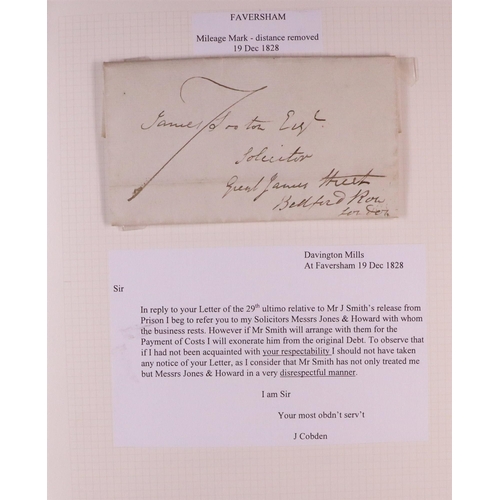 FAVERSHAM
Mileage Mark - distance removed
19 Dec 1828
7
James Foston Esqr.
Solicitor
Great James Street
Bedford Row
London
Davington Mills
At Faversham 19 Dec 1828
Sir
In reply to your Letter of the 29th ultimo relative to Mr J Smith's release from
Prison I beg to refer you to my Solicitors Messrs Jones & Howard with whom
the business rests. However if Mr Smith will arrange with them for the
Payment of Costs I will exonerate him from the original Debt. To observe that
if I had not been acquainted with your respectability I should not have taken
any notice of your Letter, as I consider that Mr Smith has not only treated me
but Messrs Jones & Howard in a very disrespectful manner.
I am Sir
Your most obdn't serv't
J Cobden